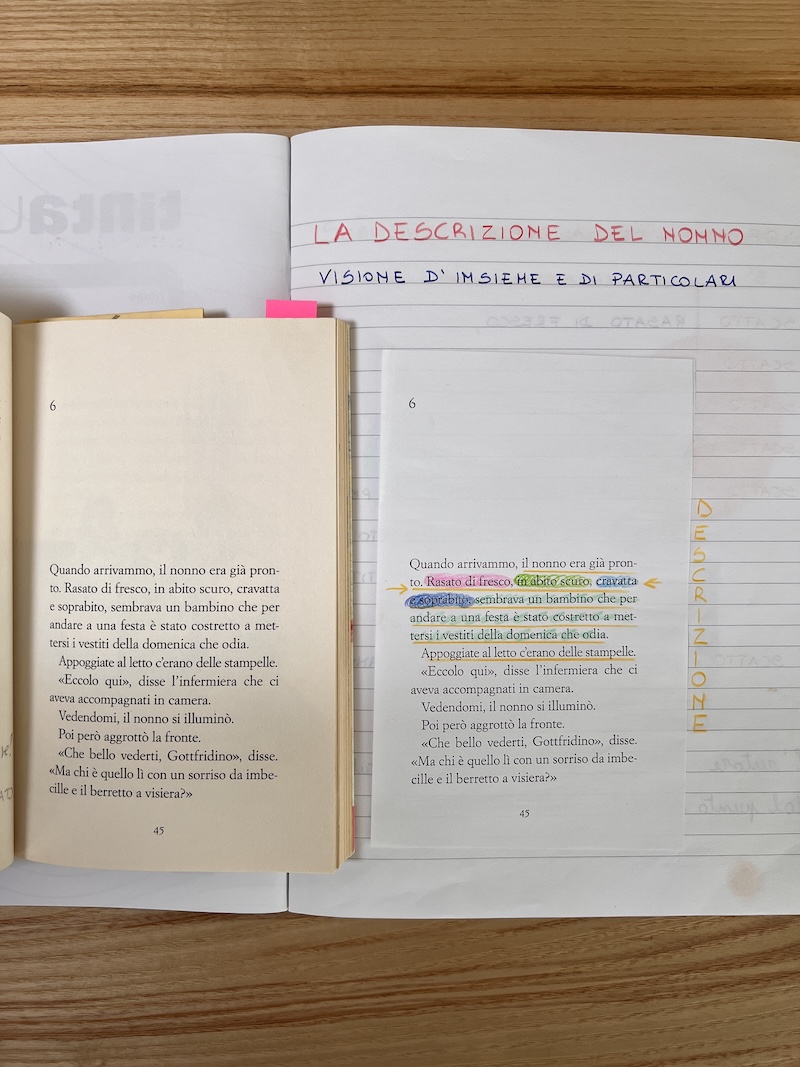 LA DESCRIZIONE DEL NONNO
VISIONE D'INSIEME E DI PARTICOLARI
6
Quando arrivammo, il nonno era già pron-
to. Rasato di fresco, in abito scuro, cravatta
e soprabito, sembrava un bambino che per
andare a una festa è stato costretto a met-
tersi i vestiti della domenica che odia.
Appoggiate al letto c'erano delle stampelle.
«Eccolo qui», disse l'infermiera che ci
aveva accompagnati in camera.
Vedendomi, il nonno si illuminò.
Poi però aggrottò la fronte.
«Che bello vederti, Gottfridino», disse.
«Ma chi è quello lì con un sorriso da imbe-
cille e il berretto a visiera?»
45
6
Quando arrivammo, il nonno era già pron-
to. Rasato di fresco, in abito scuro, cravatta
e soprabito, sembrava un bambino che per
andare a una festa è stato costretto a met-
tersi i vestiti della domenica che odia.
Appoggiate al letto c'erano delle stampelle.
«Eccolo qui», disse l'infermiera che ci
aveva accompagnati in camera.
Vedendomi, il nonno si illuminò.
Poi però aggrottò la fronte.
«Che bello vederti, Gottfridino», disse.
«Ma chi è quello lì con un sorriso da imbe-
cille e il berretto a visiera?»
45
DESCRIZIONE
tinta